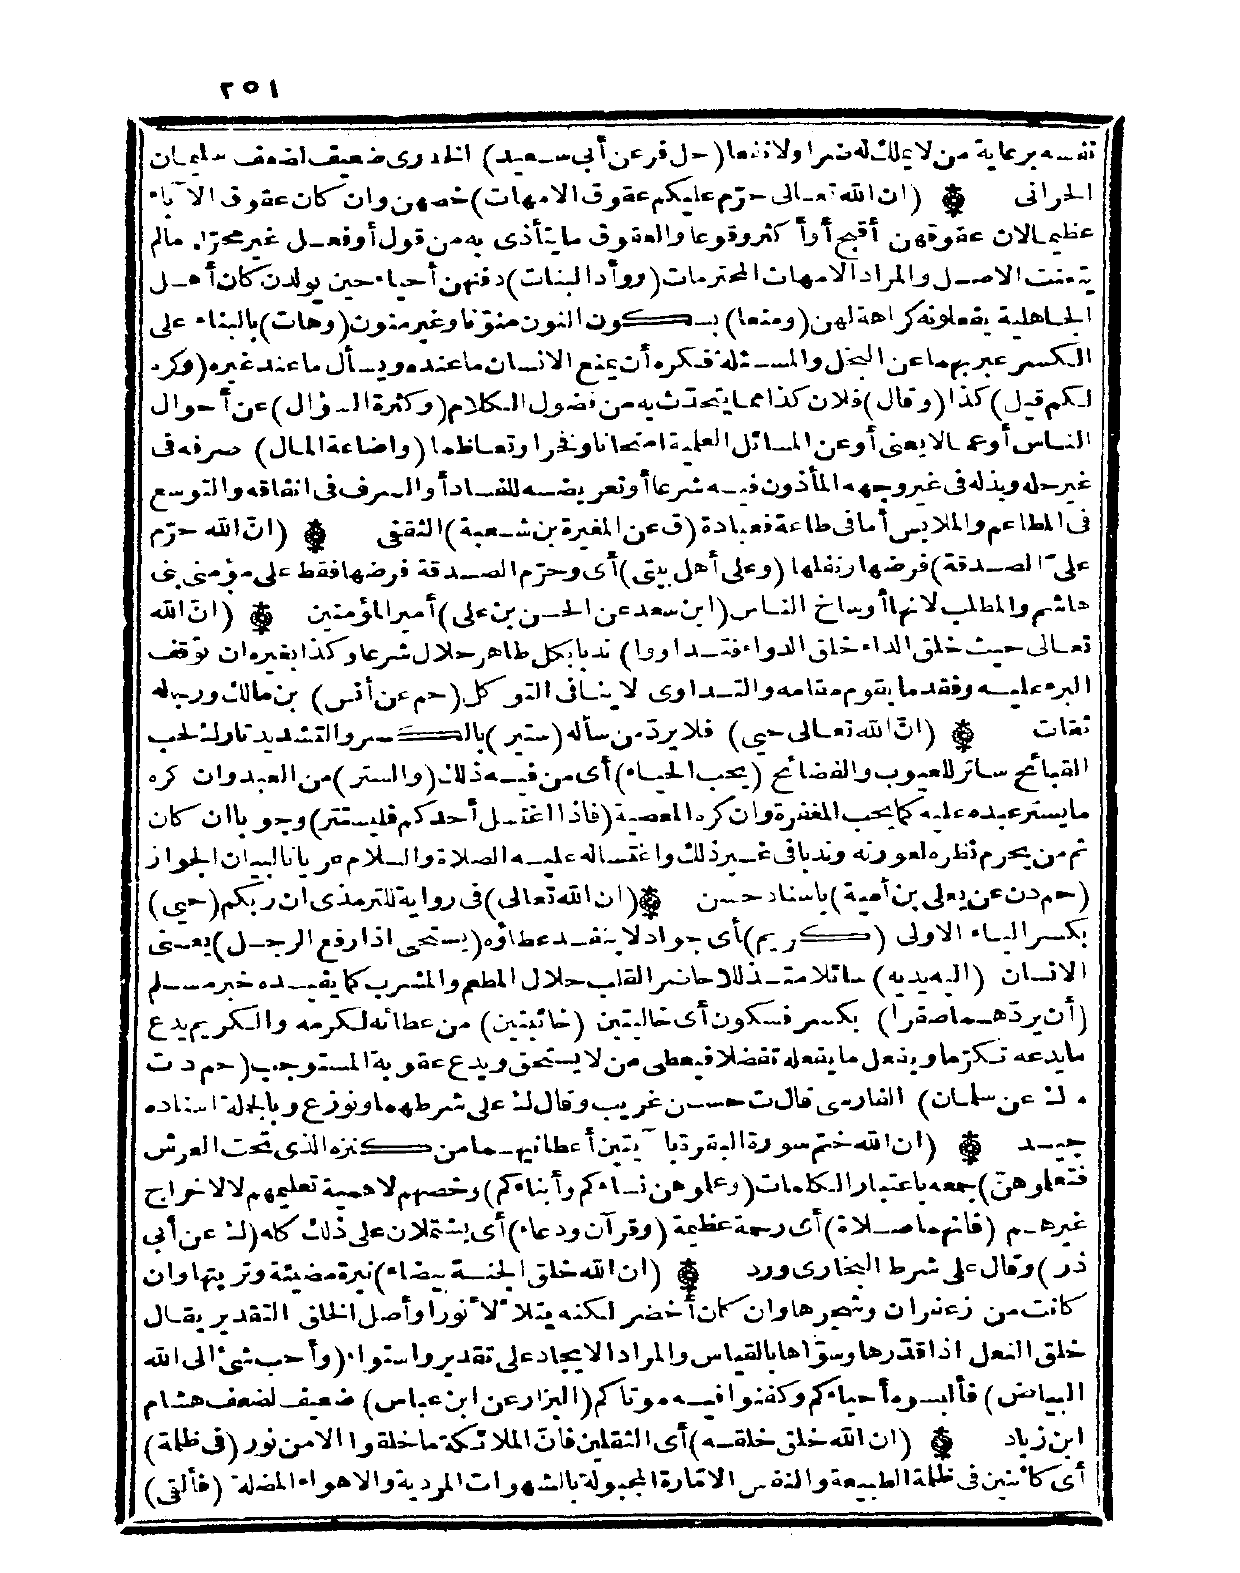 ٢٥١
نفسه برعاية من لا يملك له ضرا ولا نفعا (حل فر عن أبي سعيد) الخدرى ضعيف لضعف سليمان
الحرانى (ان الله تعالى حرّم عليكم عقوق الامهات) خصهن وان كان عقوق الآباء
عظيما لان عقوقهن أقبح أو أكثر وقوعا والعقوق ما يتأذى به من قول أو فعل غير محرّم مالم
يتعنت الاصل والمراد الامهات المحترمات (ووأد البنات) دفنهن أحياء حين يولدن كان أهل
الجاهلية يفعلونه كراهة لهن (ومنعا) بسكون النون منوّنا وغير منون (وهات) بالبناء على
الكسر عبر بهما عن البخل والمسئلة فكره أن يمنع الانسان ما عنده ويسأل ما عند غيره (وكره
لكم قيل) كذا (وقال) فلان كذا مما يتحدّث به من فضول الكلام (وكثرة السؤال) عن أحوال
الناس أو عما لا يعنى أو عن المسائل العلمية امتحانا وفخرا وتعاظما (واضاعة المال) صرفه فى
غير حله وبذله فى غير وجهه المأذون فيه شرعا أو تعريضه للفساد أو السرف فى انفاقه والتوسع
فى المطاعم والملابس أما فى طاعة فعبادة (ق عن المغيرة بن شعبة) الثقفى (انّ الله حرّم
علىّ الصدقة) فرضها ونفلها (وعلى أهل بيتى) أى وحرّم الصدقة فرضها فقط على مؤمنى بنى
هاشم والمطلب لانها أوساخ الناس (ابن سعد عن الحسن بن على) أمير المؤمنين (انّ الله
تعالى حيث خلق الداء خلق الدواء فتداووا) ندبا بكل طاهر حلال شرعا وكذا بغيره ان توقف
البرء عليه وفقد ما يقوم مقامه والتداوى لا ينافى التوكل (حم عن أنس) بن مالك ورجاله
ثقات (انّ الله تعالى حيي) فلا يردّ من سأله (ستير) بالكسر والتشديد تارك لحب
القبائح ساتر للعيوب والفضائح (يحب الحياء) أى من فيه ذلك (والستر) من العبد وان كره
ما يستر عبده عليه كما يحب المغفرة وان كره المعصية (فاذا اغتسل أحدكم فليستتر) وجوبا ان كان
ثم من يحرم نظره لعورته وندبا فى غير ذلك واغتساله عليه الصلاة والسلام عريانا لبيان الجواز
(حم د ن عن يعلى بن أمية) باسناد حسن (ان الله تعالى) فى رواية للترمذى ان ربكم (حيي)
بكسر الياء الاولى (كريم) أى جواد لا ينفد عطاؤه (يستحى اذا رفع الرجل) يعنى
الانسان (اليه يديه) سائلا متذللا حاضر القلب حلال المطعم والمشرب كما يفيده خبر مسلم
(أن يردّهما صفرا) بكسر فسكون أى خاليتين (خائبتين) من عطائه لكرمه والكريم يدع
ما يدعه تكرّما ويفعل ما يفعله تفضلا فيعطى من لا يستحق ويدع عقوبة المستوجب (حم د ت
ه ك عن سلمان) الفارسى قال ت حسن غريب وقال ك على شرطهما ونوزع وبالجملة اسناده
جيد (ان الله ختم سورة البقرة بآيتين أعطانيهما من كنزه الذى تحت العرش
فتعلموهنّ) جمعه باعتبار الكلمات (وعلموهن نساءكم وأبناءكم) وخصهم لاهمية تعليمهم لا لاخراج
غيرهم (فانهما صلاة) أى رحمة عظيمة (وقرآن ودعاء) أى يشتملان على ذلك كله (ك عن أبى
ذر) وقال على شرط البخارى ورد (ان الله خلق الجنة بيضاء) نيرة مضيئة وتربتها وان
كانت من زعفران وشجرها وان كان أخضر لكنه يتلألأ نورا وأصل الخلق التقدير يقال
خلق النعل اذا قدّرها وسوّاها بالقياس والمراد الايجاد على تقدير واستواء (وأحب شئ الى الله
البياض) فألبسوه أحياءكم وكفنوا فيه موتاكم (البزار عن ابن عباس) ضعيف لضعف هشام
ابن زياد (ان الله خلق خلقه) أى الثقلين فانّ الملائكة ما خلقوا الا من نور (فى ظلمة)
أى كائنين فى ظلمة الطبيعة والنفس الامارة المجبولة بالشهوات المردية والاهواء المضلة (فألقى)